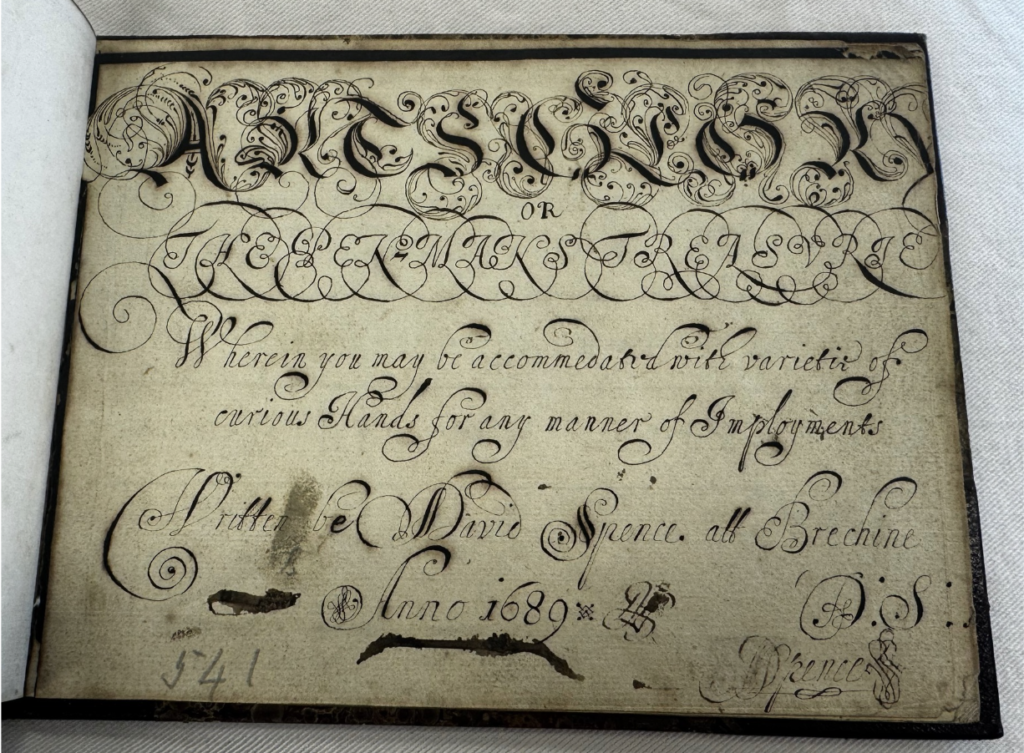 ARTS GLOR
OR
THE PEN-MANS TREASVRIE
Wherein you may be accommedated with varietie of
curious Hands for any manner of Imployments
Written be David Spence. att Brechine
Anno 1689
D : S :
DSpence
541